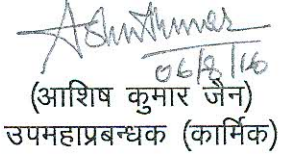 06/8/16
(आशिष कुमार जैन)
उपमहाप्रबन्धक (कार्मिक)